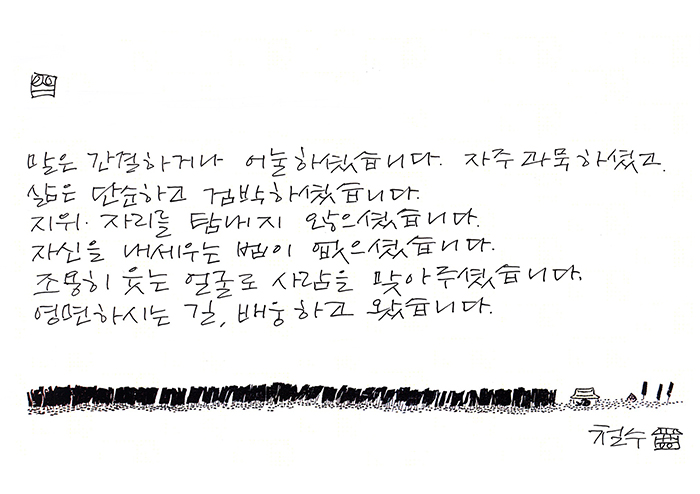 말은 간결하거나 어눌하셨습니다. 자주 과묵하셨고.
삶은 단순하고 검박하셨습니다.
지위·자리를 탐내지 않으셨습니다.
자신을 내세우는 법이 없으셨습니다.
조용히 웃는 얼굴로 사람을 맞아주셨습니다.
영면하시는 길, 배웅하고 왔습니다.
철수